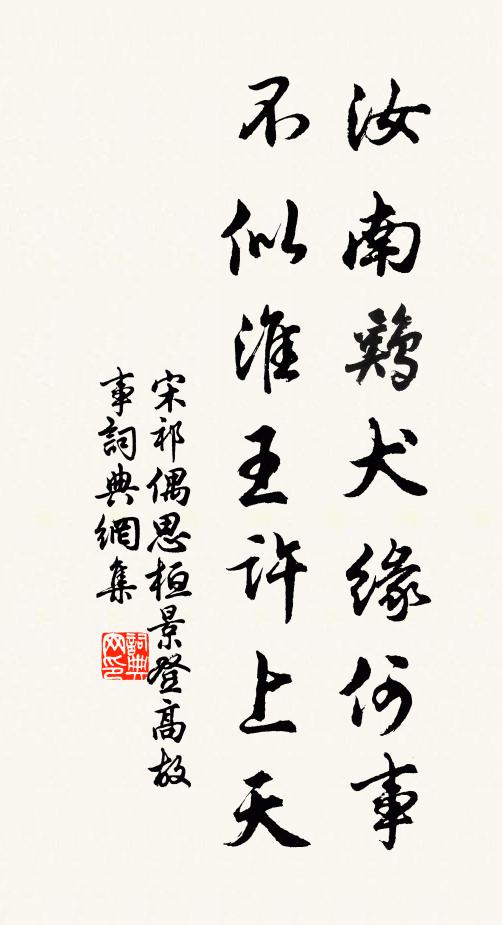 汝南鷄犬緣何事
不似淮王許上天
宋祁偶思桓景登高故
事詞典網集
詞典网印